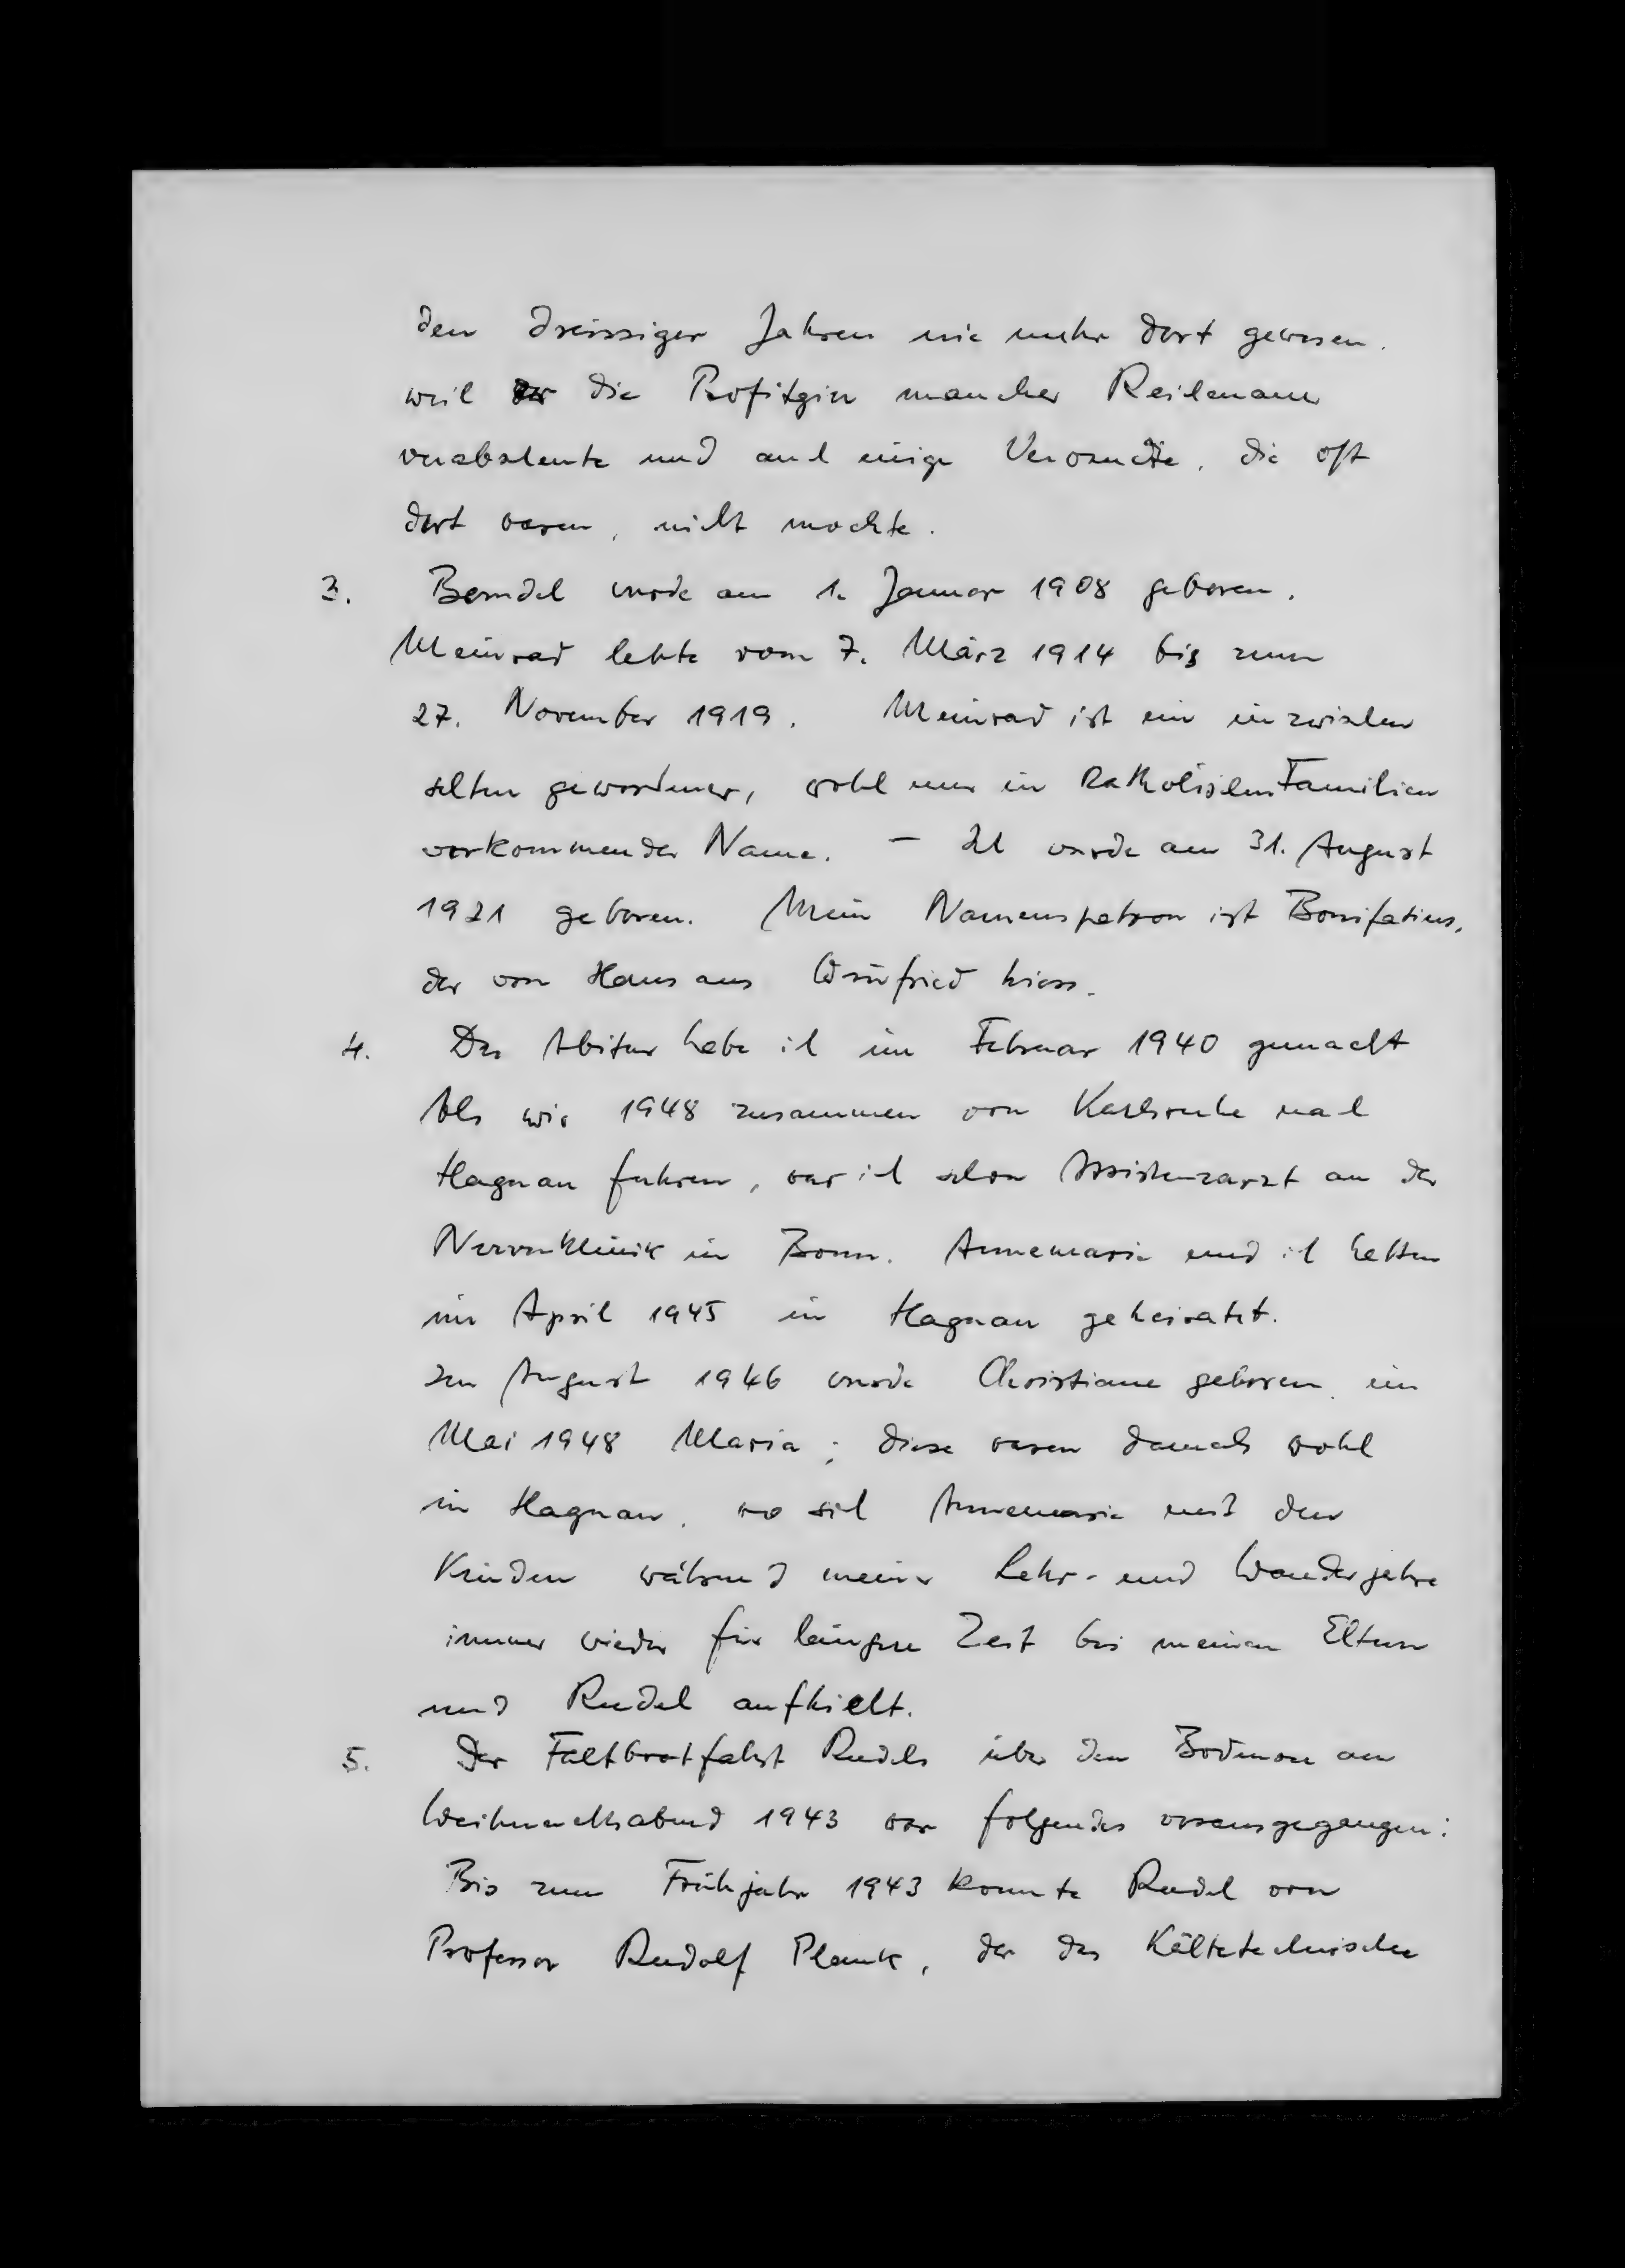 den dreissiger Jahren nie mehr dort gewesen.
weil die Profitgier mancher Reichenauer
verabscheute und auch einige Verwandte, die oft
dort waren, nicht mochte.
3. Berndel wurde am 1. Januar 1908 geboren.
Meinrad lebte vom 7. März 1914 bis zum
27. November 1919. Meinrad ist ein inzwischen
selten gewordener, wohl nur in katholischen Familien
vorkommender Name. - Ich wurde am 31. August
1921 geboren. Mein Namenspatron ist Bonifatius,
der von Haus aus Winfried hiess.
4. Das Abitur habe ich im Februar 1940 gemacht
Als wir 1948 zusammen von Karlsruhe nach
Hagnau fuhren, war ich schon Assistenzarzt an der
Nervenklinik in Bonn. Annemarie und ich hatten
im April 1945 in Hagnau geheiratet.
Im August 1946 wurde Christiane geboren, im
Mai 1948 Maria; diese waren damals wohl
in Hagnau, wo sich Annemarie mit den
Kindern während meiner Lehr- und Wanderjahre
immer wieder für längere Zeit bei meinen Eltern
und Rudel aufhielt.
5. Der Faltbootfahrt Rudels über den Bodensee am
Weihnachtsabend 1943 war folgendes vorausgegangen:
Bis zum Frühjahr 1943 konnte Rudel von
Professor Rudolf Plank, der das Kältetechnische